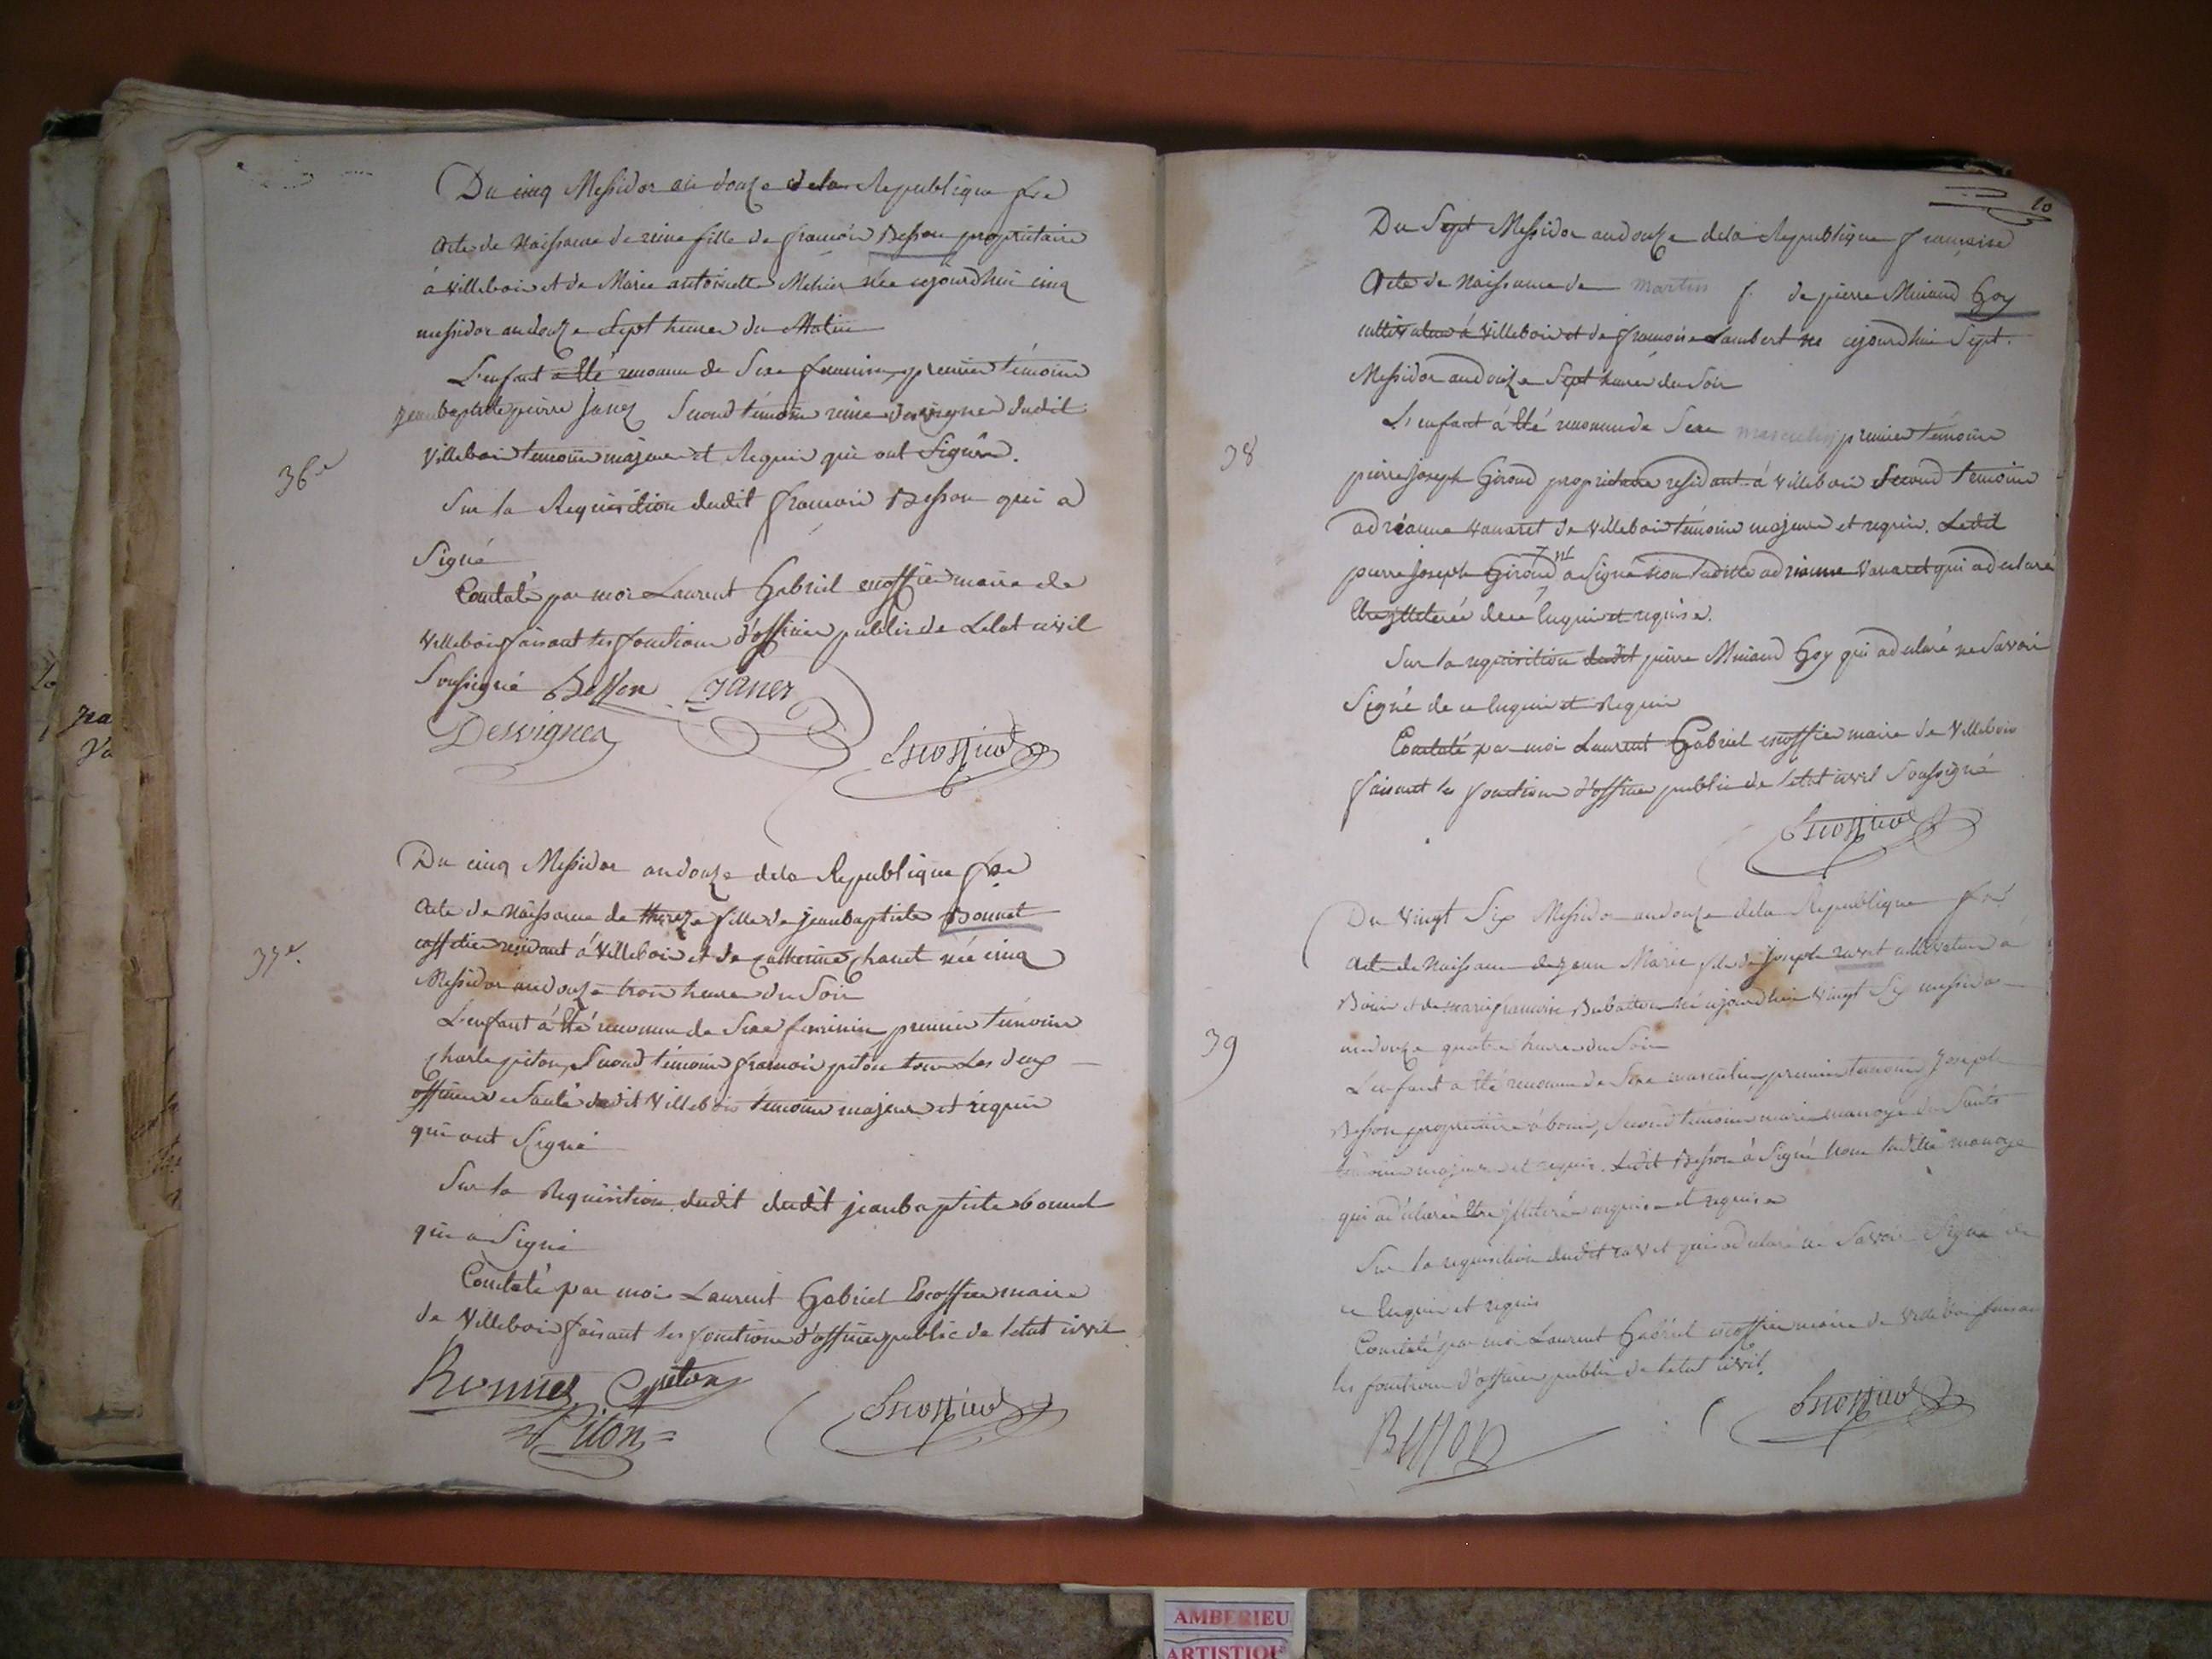 Du cinq Messidor an douze de la Republique fre
acte de Naissance de reine fille de francois Besson propriétaire
à villebois et de Marie antoinette Mehier née cejourdhui cinq
messidor an douze Sept heures du Matin
L'enfant a été reconnu de Sexe feminin, premier témoin
jean baptiste pierre Janez Second témoin reine desvignes dudit
36e
villebois temoins majeurs et Requis qui ont Signés.
Sur la Requisition dudit francois Besson qui a
Signé
Constaté par moi Laurent Gabriel escoffier maire de
villebois faisant les fonctions d'officier public de Letat civil
Soussigné Besson Janez
Desvignes
Escoffier
Du cinq Messidor an douze de la Republique fre
acte de Naissance de thereze fille de jean baptiste Bonnet
37e.
résidant à Villebois et de Catherine Chanet née cinq
Messidor an douze trois heures du Soir
L'enfant à été reconnu de Sexe feminin, premier témoin
Charle piton, Second témoin francois piton tous Les deux
officiers de Santé dudit Villebois témoins majeurs et requis
qui ont Signé
Sur la Requisition dudit dudit jean baptiste bonnet
qui a Signé
Constaté par moi Laurent Gabriel Escoffier maire
de Villebois faisant les fonctions d'officier public de letat civil
Bonnet Piton
Piton
Escoffier
10
Du Sept Messidor an douze de la Republique francaise
Acte de Naissance de martin f. de pierre Miniand Goy
cultivateur à Villebois et de francoise Lambert né cejourdhui Sept.
Messidor an douze Sept heures du Soir
L'enfant à été reconnu de Sexe masculin premier témoin
38
pierre joseph Giroud propriétaire residant à villebois Second temoin
adrianne vanaret de Villebois témoins majeurs et requis. Ledit
pierre joseph Giroud a Signé non ladite adrianne Vanaret qui a declaré
être illeterée de ce enquise et requise.
Sur la requisition dudit pierre Miniand Goy qui a declaré ne Savoir
Signé de ce enquis et Requis
Constaté par moi Laurent Gabriel escoffier maire de Villebois
faisant les fonctions d'officier public de letat civil Soussigné
Escoffier
Du vingt Six Messidor an douze de la Republique fre
acte de Naissance de jean Marie fils de joseph ravet cultivateur à
Bouis et de marie francoise né cejourdhui vingt Six messidor
39
an douze quatre heures du Soir
L'enfant a été reconnu de Sexe masculin, premier temoin Joseph
Besson propriétaire à bouis, Second témoin marie manoye de Sault
témoins majeurs et requis. Ledit Besson à Signé non ladite manoye
qui a déclaré être illiterée enquise et requise
Sur la requisition dudit ravet qui a declaré ne Savoir Signé de
ce enquis et requis
Constaté par moi Laurent Gabriel escoffier maire de Villebois faisant
les fonctions d'officier public de letat civil.
Besson
Escoffier
AMBERIEU
ARTISTIQUE